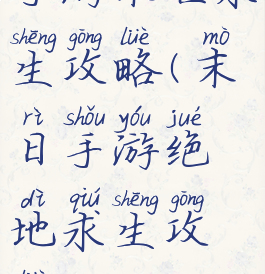 shēng gōng lüè mò
生攻略(末
rì shǒu yóu jué
日手游绝
dì qiú shēng gōng
地求生攻